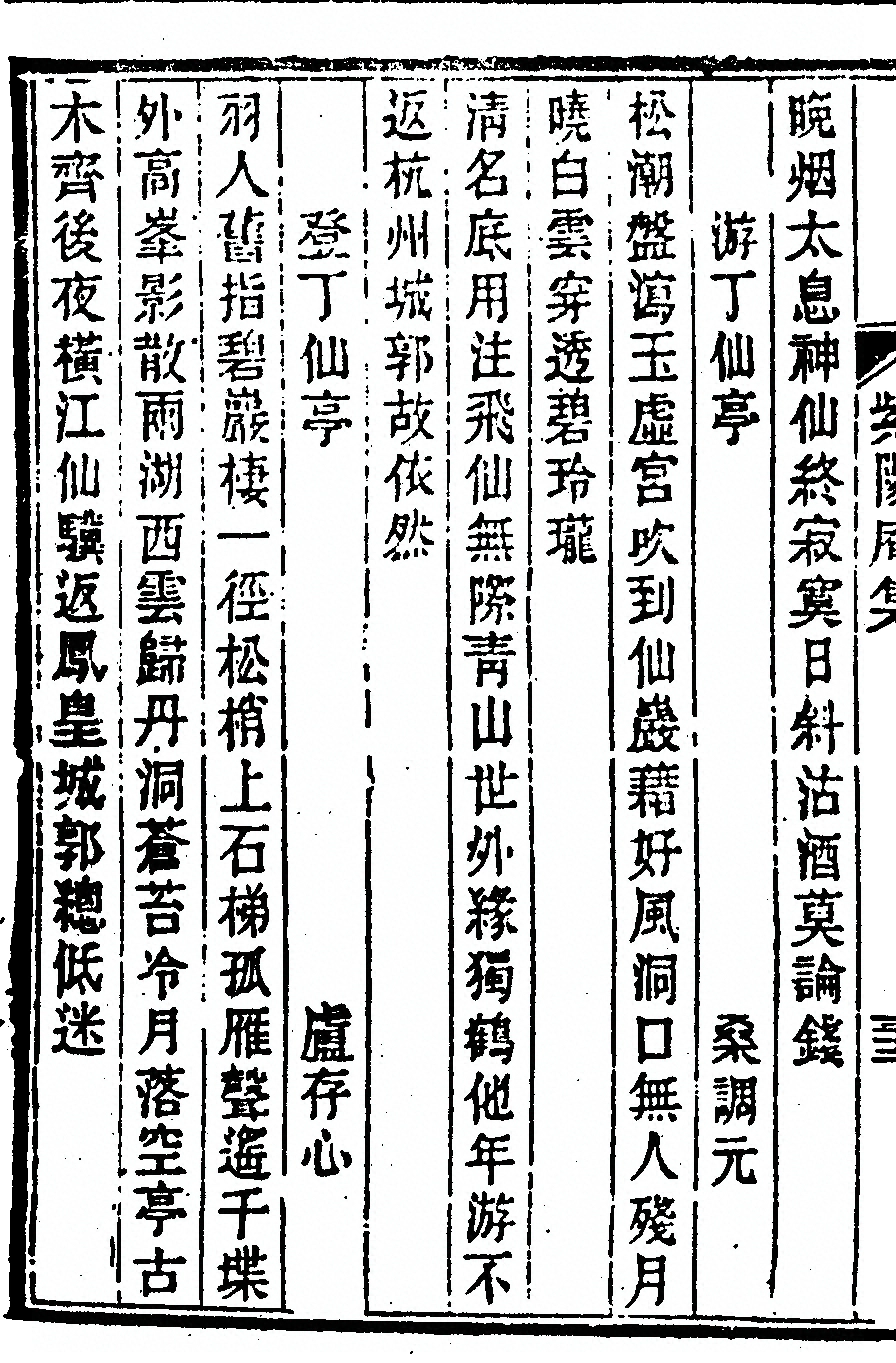 紫陽庵集
晚烟太息神仙終寂寞日斜沽酒莫論錢
游丁仙亭　桑調元
松潮盤蕩玉虛宮吹到仙巖藉好風洞口無人殘月
曉白雲穿透碧玲瓏
清名底用注飛仙無際青山世外緣獨鶴他年游不
返杭州城郭故依然
登丁仙亭　盧存心
羽人舊指碧巖棲一徑松梢上石梯孤雁聲遙千堞
外高峯影散兩湖西雲歸丹洞蒼苔冷月落空亭古
木齊後夜橫江仙驥返鳳皇城郭總低迷